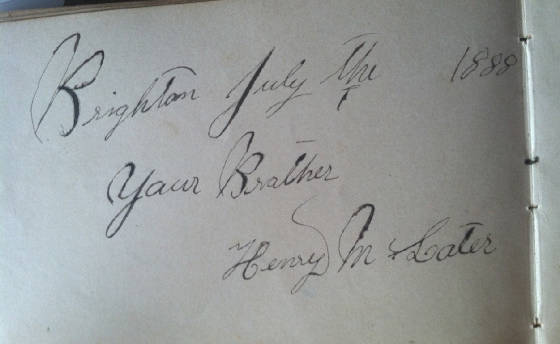 Brighton July the 1888
Your Brother
Henry M Slater